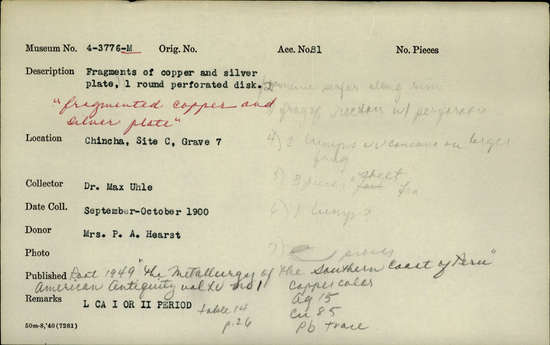 Museum No. 4-3776-M Orig. No. Acc. No. 81 No. Pieces
Description Fragments of copper and silver
plate, 1 round perforated disk.
along rim
"fragmented copper and
silver plate"
3) frags w/ perforation
4) 2 on larger
frag
Location Chincha, Site C, Grave 7
5) 3 pieces "sheet
Collector Dr. Max Uhle
6) 1 lump?
Date Coll. September-October 1900
Donor Mrs. P. A. Hearst
Photo
7)
Published Root 1949 "The Metallurgy of the Southern Coast of Peru"
American Antiquity vol. no 1
copper color
Remarks L CA I OR II PERIOD table 14
p.26
Ag 15
Cu 85
Pb trace
50m-8,'40(7281)